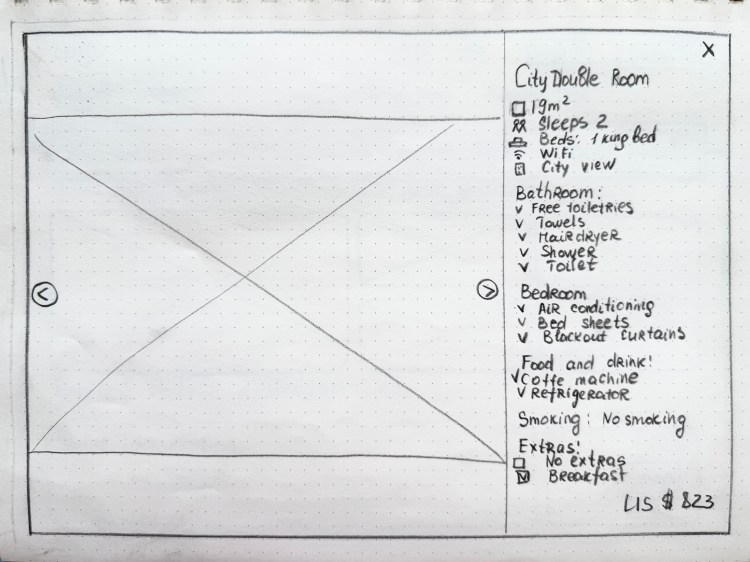 X
City Double Room
19m²
Sleeps 2
Beds: 1 king bed
WiFi
City view
Bathroom:
v Free toiletries
v Towels
v Hairdryer
v Shower
v Toilet
Bedroom
v Air conditioning
v Bed sheets
v Blackout curtains
Food and drink:
v Coffe machine
v Refrigerator
Smoking: No smoking
Extras:
No extras
Breakfast
US $ 823